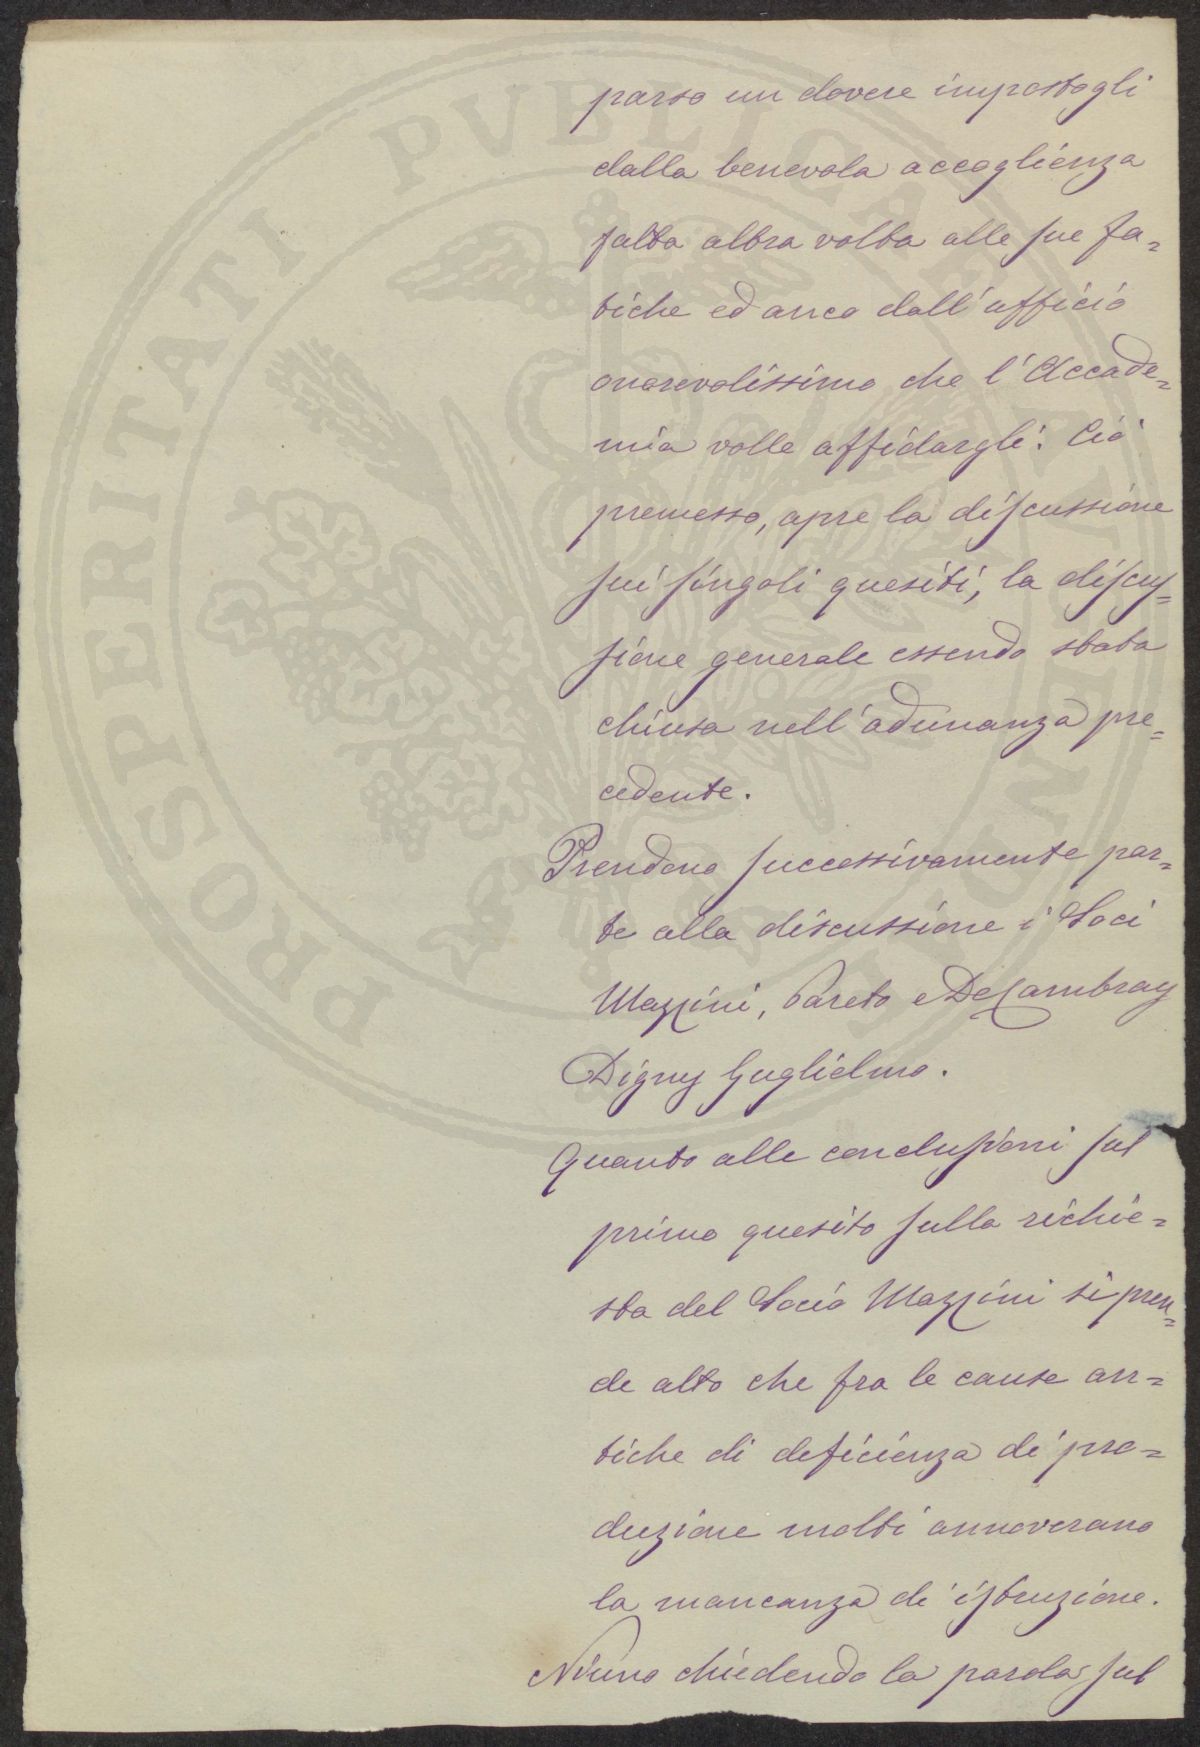 parso un dovere impostogli
dalla benevola accoglienza
fatta altra volta alle sue fa=
tiche ed anco dall'ufficio
onorevolissimo che l'Accade=
mia volle affidargli. Ciò
premesso, apre la discussione
sui singoli quesiti, la discus=
sione generale essendo stata
chiusa nell'adunanza pre=
cedente.
Prendono successivamente par=
te alla discussione i Soci
Mazzini, Pareto e De Cambray
Digny Guglielmo.
Quanto alle conclusioni sul
primo quesito sulla richie=
sta del Socio Mazzini si pren=
de atto che fra le cause an=
tiche di deficienza di pro=
duzione molti annoverano
la mancanza di istruzione.
Niuno chiedendo la parola sul
PROSPERITATI PUBLICAE